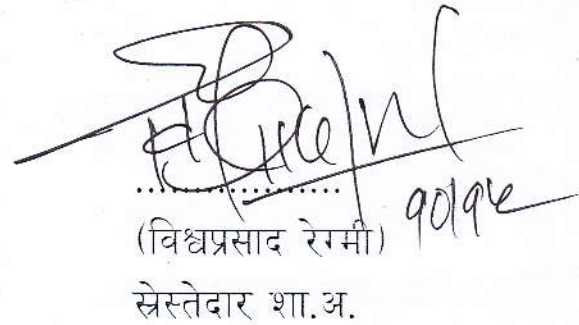 १०।१५
....................
(विश्वप्रसाद रेग्मी)
स्रेस्तेदार शा.अ.